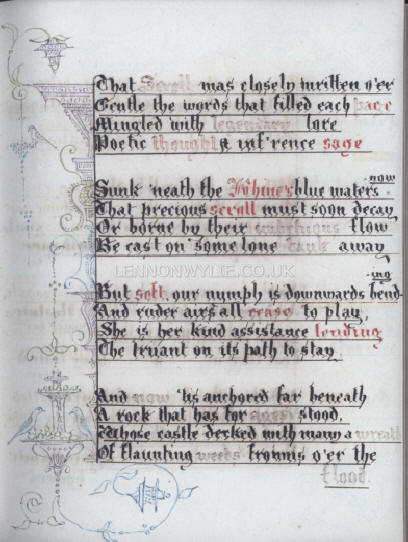 That Scroll was closely written o'er
Gentle the words that filled each page
Mingled with legendary lore
Poetic thought & inf'rence sage
now
Sunk 'neath the Rhine's blue waters
That precious scroll must soon decay
Or borne by their flow
Be cast on some lone bank away
LENNONWYLIE.CO.UK
ing
But soft, our nymph is downwards bend-
And ruder airs all cease to play,
She is her kind assistance lending
The truant on its path to stay.
And now 'tis anchored far beneath
A rock that has for ages stood,
Whose castle decked with many a wreath
Of flaunting weeds frowns o'er the
flood.